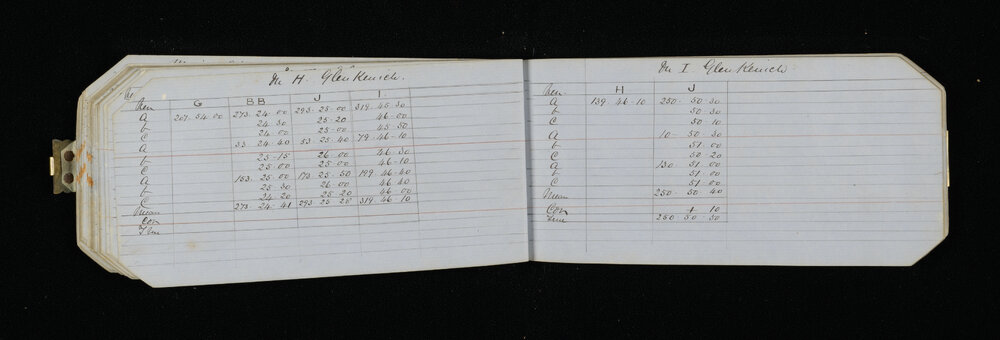 H Glen Kenich.
G BB J I
A 207. 54. 00 273. 24. 00 293. 25. 00 319. 45. 30
b 24. 30 25. 20 46. 00
C 24. 00 25. 00 45. 50
A 33. 24. 40 53. 25. 40 79. 46. 10
b 25. 15 26. 00 46. 30
C 25. 00 25. 00 46. 10
A 153. 25. 00 173. 25. 50 199. 46. 40
b 25. 30 26. 00 46. 40
C 24. 20 25. 20 46. 00
Mean 273. 24. 41 293. 25. 28 319. 46. 10
Con
I Glen Kenich
H J
A 139. 46. 10 250. 50. 30
b 50. 30
C 50. 10
A 10. 50. 30
b 51. 00
C 50. 20
A 130. 51. 00
b 51. 00
C 51. 00
Mean 250. 50. 40
Con + 10
250. 50. 50